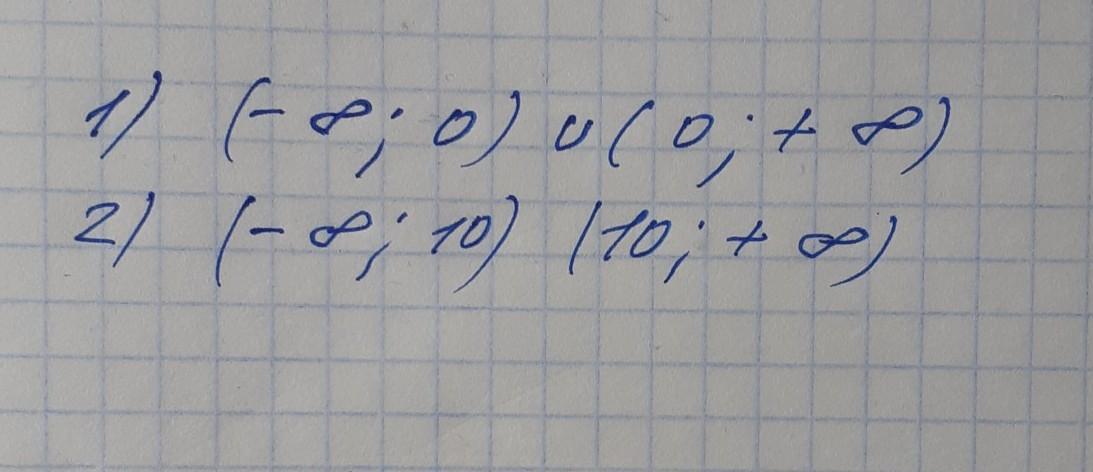 1) (- ∞; 0) ∪ (0; + ∞)
2) (- ∞; 10) (10; + ∞)